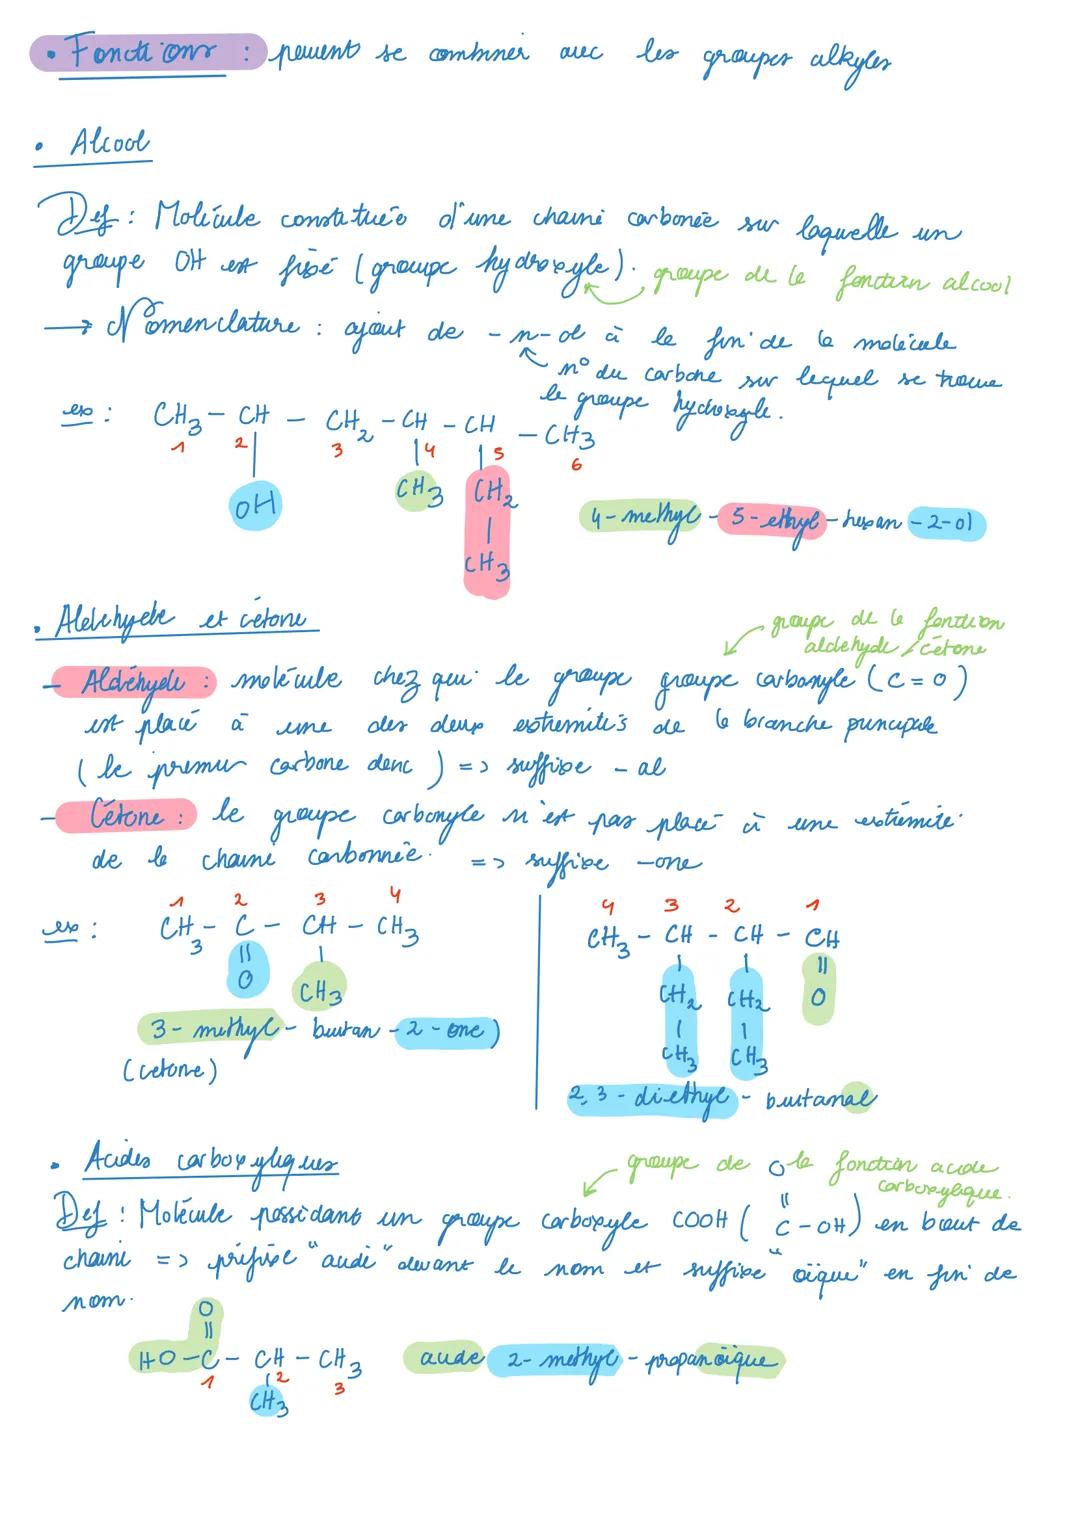 • Fonctions : peuvent se combiner avec les groupes alkyles
• Alcool
Def : Molécule constituée d'une chaine carbonée sur laquelle un
groupe OH est fixé (groupe hydroxyle). groupe de la fonction alcool
→ Nomenclature : ajout de -n-ol à la fin de la molécule
n° du carbone sur lequel se trouve
le groupe hydroxyle.
ex : CH3 - CH - CH2 - CH - CH - CH3
1 2 3 4 5 6
OH CH3 CH2
CH3
4-methyl - 5-ethyl - hexan - 2-ol
• Aldehyde et cétone
groupe de la fonction
aldehyde / cétone
- Aldéhyde : molécule chez qui le groupe groupe carbonyle (C=O)
est placé à une des deux extremités de la branche principale
(le premier carbone donc) => suffixe -al
- Cétone : le groupe carbonyle n'est pas placé à une extrémité
de la chaine carbonnée. => suffixe -one
1 2 3 4
ex : CH3 - C - CH - CH3
O CH3
3 - methyl - butan - 2 - one)
(cetone)
4 3 2 1
CH3 - CH - CH - CH
CH2 CH2 O
CH3 CH3
2,3 - diethyl - butanal
• Acides carboxyliques
groupe de la fonction acide
carboxylique.
O
Def : Molécule possédant un groupe carboxyle COOH (C-OH) en bout de
chaine => préfixe "acide" devant le nom et suffixe "oïque" en fin de
nom.
O
HO-C - CH - CH3
1 2 3
CH3
acide 2-methyl - propanoïque